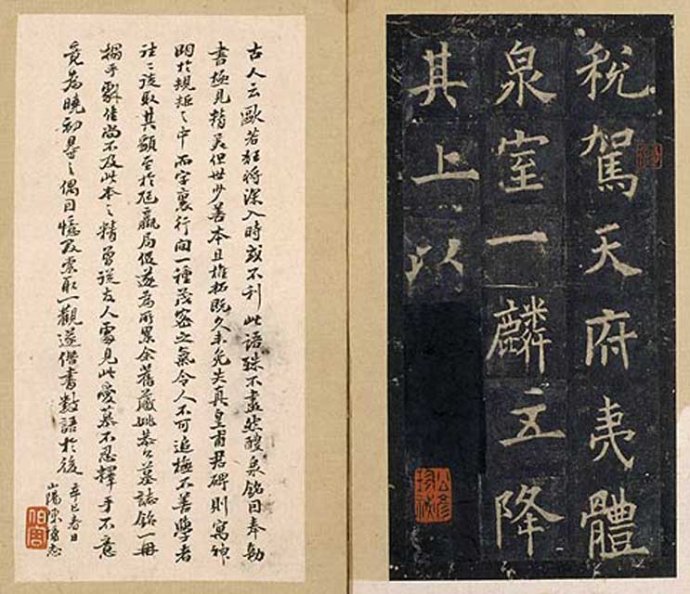 税駕天府夷體
泉室一麟五降
其上以
古人云歐若狂將深入時或不利此語殊不盡然醴泉銘因奉勅
書極見精美但世少善本且椎拓既久未免失真皇甫君碑則寓神
明於規矩之中而字裏行間一種茂密之氣令人不可追極不善學者
往往取其顰至於尫羸局促遂為所累余舊藏姚恭公墓誌銘一冊
搨手佳尚不及此本之精曾從友人處見此愛慕不忍釋手不意
竟為曉初得之偶因憶及索取一觀遂僭書數語於後
辛巳春日
山陽